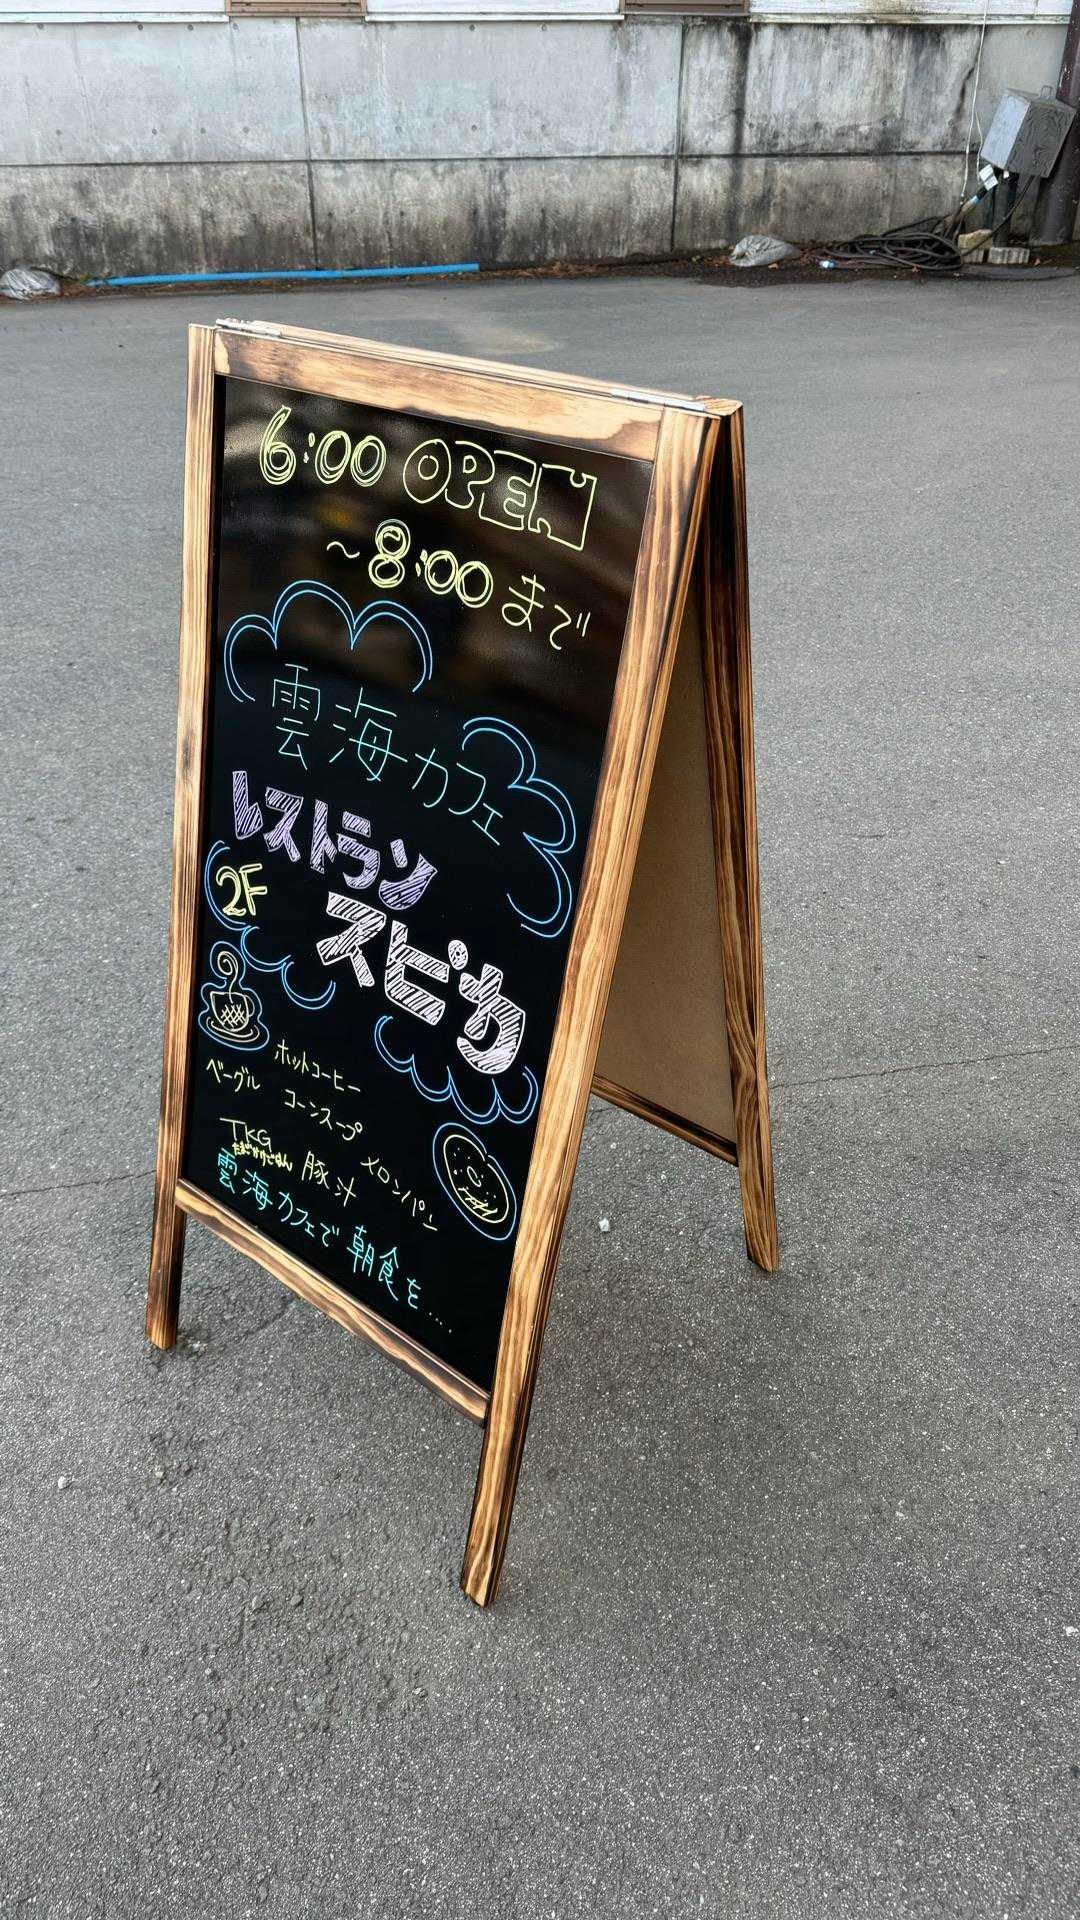 6:00 OPEN
～8:00 まで
雲海カフェ
レストラン
2F
スピカ
ホットコーヒー
ベーグル コーンスープ
TKG
たまごかけごはん
豚汁 メロンパン
雲海カフェで朝食を....